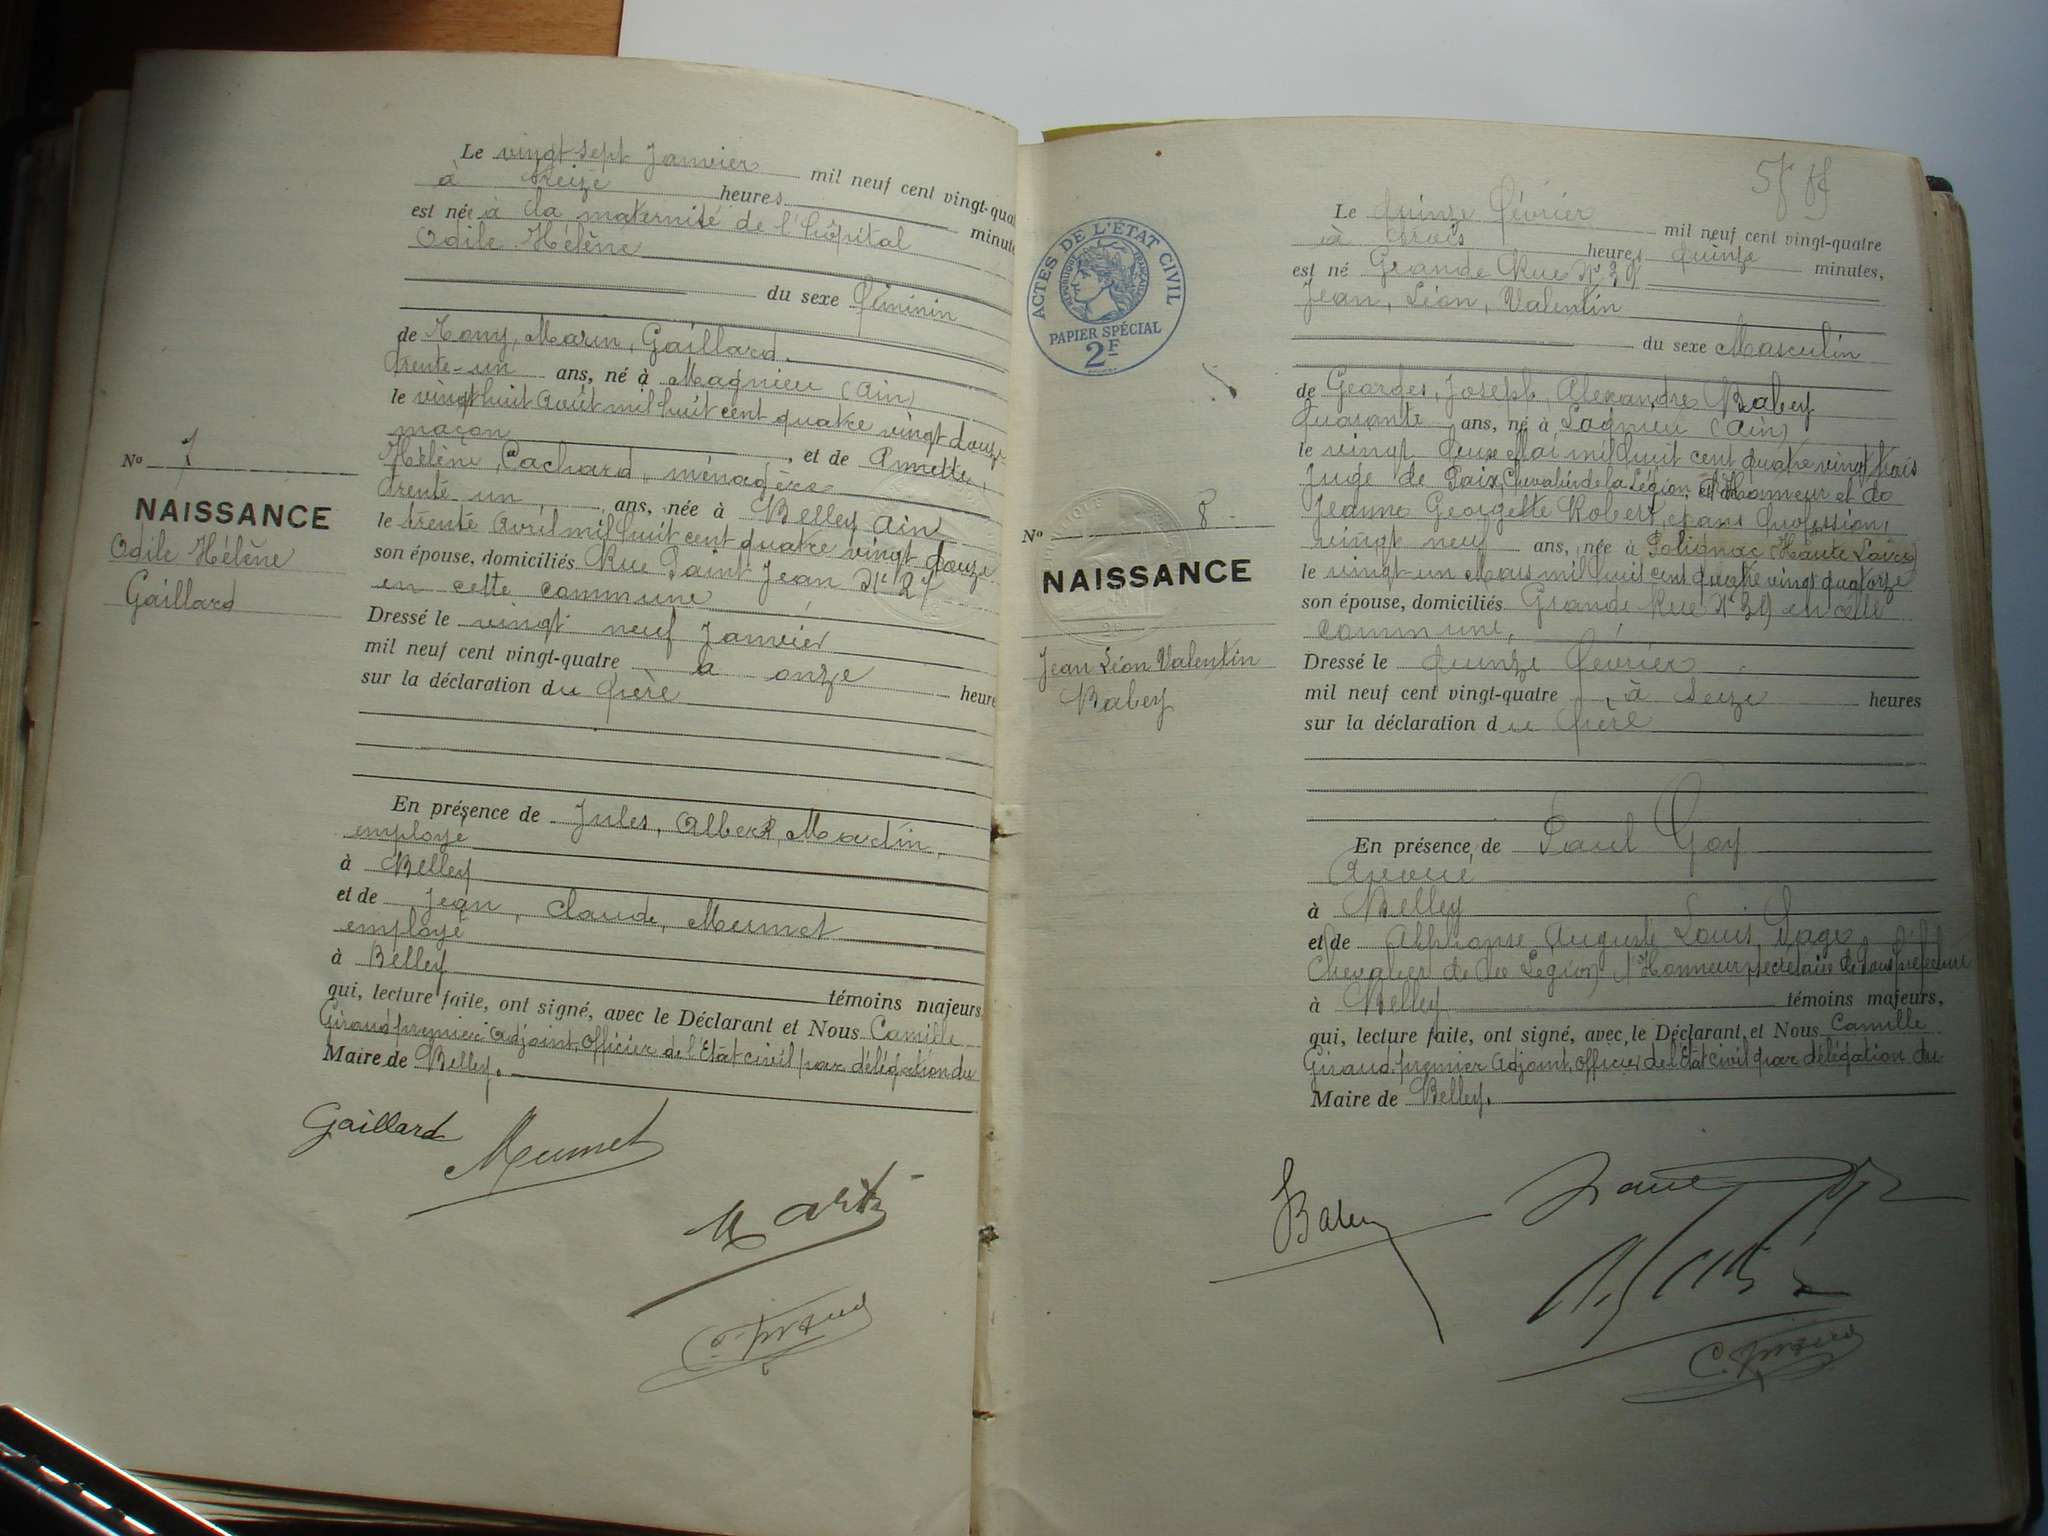 Le vingt sept Janvier mil neuf cent vingt-quat
à treize heures minute
est née à la maternité de l'hôpital
Odile Hélène
du sexe féminin
de Tony, Marin, Gaillard.
trente-un ans, né à Magnieu (Ain)
le vingt huit Août mil huit cent quatre vingt douze
maçon, et de Annette,
Hélène, Pachard, ménagère
trente un ans, née à Belley Ain
le trente Avril mil huit cent quatre vingt douze
son épouse, domiciliés Rue Saint Jean N° 27
en cette commune
Dressé le vingt neuf Janvier
mil neuf cent vingt-quatre à onze heure
sur la déclaration du père
En présence de Jules, Albert, Martin,
employé
à Belley
et de Jean, Claude, Mermet
employé
à Belley témoins majeurs
qui, lecture faite, ont signé, avec le Déclarant et Nous Camille
Giraud premier Adjoint, Officier de l'Etat civil par délégation du
Maire de Belley.
Gaillard
Mermet
Martin
C. Giraud
N° 7
NAISSANCE
Odile Hélène
Gaillard
ACTES DE L'ÉTAT CIVIL
RÉPUBLIQUE FRANÇAISE
PAPIER SPÉCIAL
2F
N° 8
NAISSANCE
Jean Léon Valentin
Babey
Le quinze février mil neuf cent vingt-quatre
à trois heures quinze minutes,
est né Grande Rue N° 39
Jean, Léon, Valentin
du sexe Masculin
de Georges, Joseph, Alexandre Babey
quarante ans, né à Lagnieu (Ain)
le vingt deux Mai mil huit cent quatre vingt trois
Juge de Paix, Chevalier de la Légion d'Honneur et de
Jeanne Georgette Robert, sans profession,
vingt neuf ans, née à Polignac (Haute Loire)
le vingt-un Mars mil huit cent quatre vingt quatorze
son épouse, domiciliés Grande Rue N° 39 en cette
commune,
Dressé le quinze février
mil neuf cent vingt-quatre à seize heures
sur la déclaration du père
En présence de Paul Goy
Avoué
à Belley
et de Alphonse Auguste Louis
Chevalier de la Légion d'Honneur, secrétaire de sous préfecture
à Belley témoins majeurs,
qui, lecture faite, ont signé, avec le Déclarant et Nous Camille
Giraud premier Adjoint, Officier de l'Etat civil par délégation du
Maire de Belley.
Babey
C. Giraud